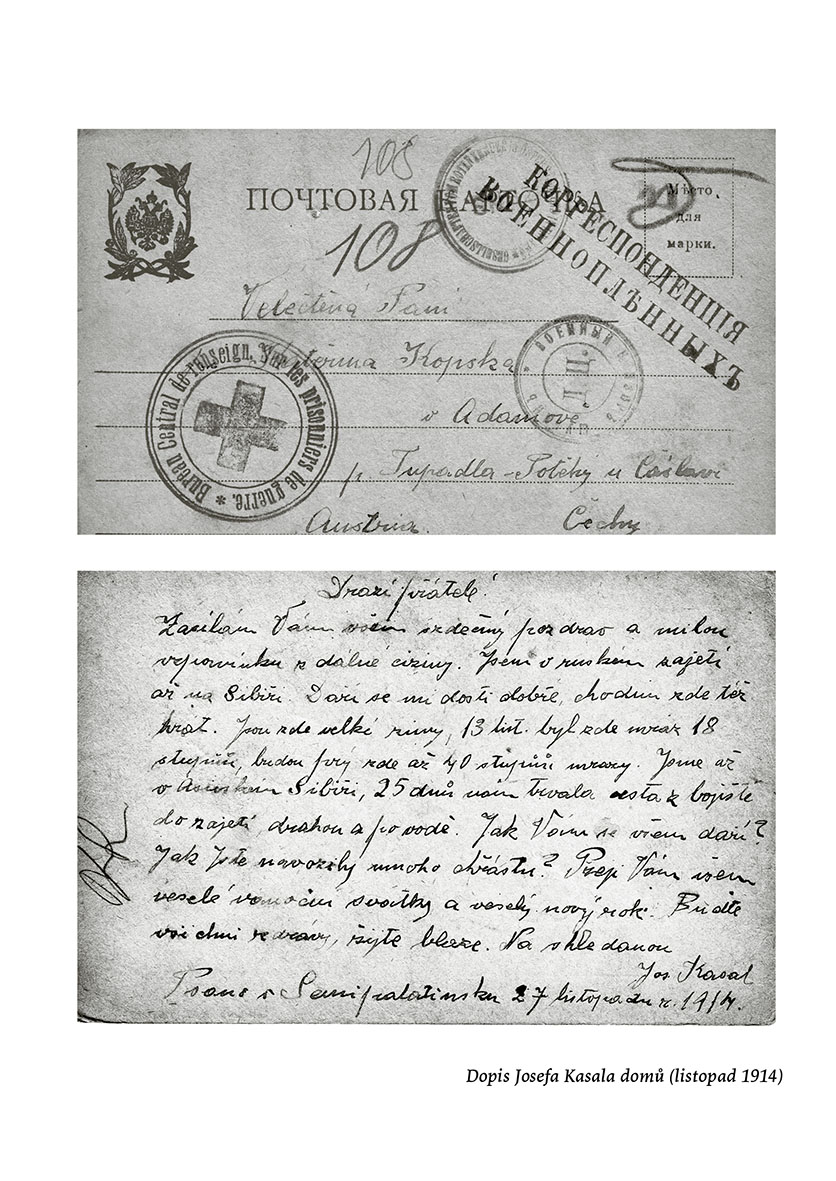 108
ПОЧТОВАЯ КАРТОЧКА
Мѣсто
для
марки.
КОРРЕСПОНДЕНЦІЯ
ВОЕННОПЛѢННЫХЪ
108
Velectěná Paní
Kopska
v Adamově
p. Tupadla - Potěhy u Čáslavi
Austria. Čechy
Bureau Central de renseign. Sur les prisonniers de guerre. *
ВОЕННЫЙ
Drazí přátelé!
Zasílám Vám všem srdečný pozdrav a milou
vzpomínku z dálné ciziny. Jsem v ruském zajetí
až na Sibiři. Daří se mi dosti dobře, chodím zde též
hrát. Jsou zde velké zimy, 13 list. byl zde mráz 18
stupňů, budou prý zde až 40 stupňů mrazy. Jsme až
v Asijském Sibiři, 25 dnů nám trvala cesta z bojiště
do zajetí, drahou a po vodě. Jak Vám se všem daří?
Jak jste navozily mnoho chrástu? Přeji Vám všem
veselé vánoční svátky a veselý nový rok. Buďte
všichni zdrávy, žijte blaze. Na shledanou
Jos. Kasal
Psáno v Semipalatinsku 27 listopadu r. 1914.
Dopis Josefa Kasala domů (listopad 1914)